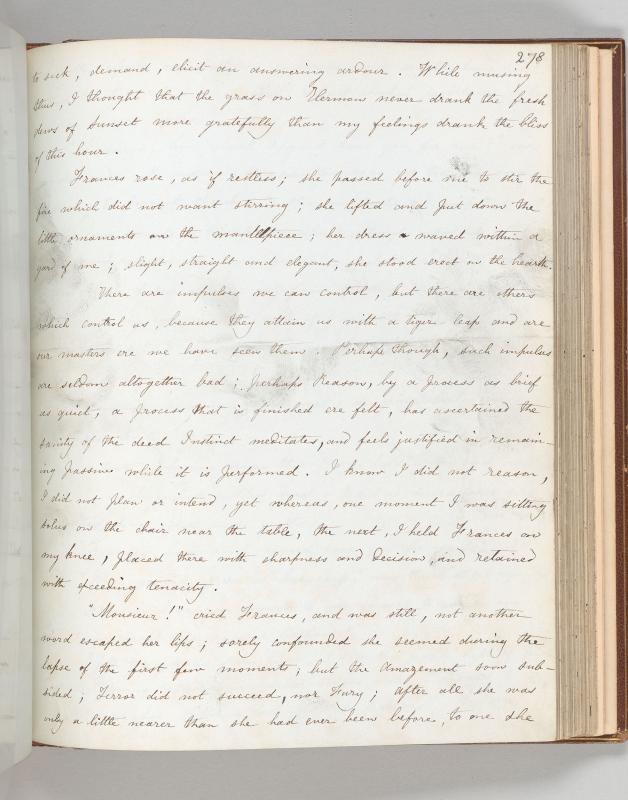 278
to seek, demand, elicit an answering ardour. While musing
thus, I thought that the grass on Clermons never drank the fresh
dews of Sunset more gratefully than my feelings drank the bliss
of this hour.
Frances rose, as if restless; she passed before me to stir the
fire which did not want stirring; she lifted and put down the
little ornaments on the mantlepiece; her dress waved within a
yard of me; slight, straight and elegant, she stood erect on the hearth.
There are impulses we can control, but there are others
which control us, because they attain us with a tiger leap and are
our masters ere we have seen them. Perhaps though, such impulses
are seldom altogether bad; perhaps Reason, by a process as brief
as quiet, a process that is finished ere felt, has ascertained the
sanity of the deed Instinct meditates, and feels justified in remain-
ing passive while it is performed. I know I did not reason,
I did not plan or intend, yet whereas, one moment I was sitting
solus on the chair near the table, the next, I held Frances on
my knee, placed there with sharpness and decision, and retained
with exceeding tenacity.
"Monsieur!" cried Frances, and was still, not another
word escaped her lips; sorely confounded she seemed during the
lapse of the first few moments; but the Amazement soon sub-
sided; Terror did not succeed, nor Fury; After all she was
only a little nearer than she had ever been before, to one she